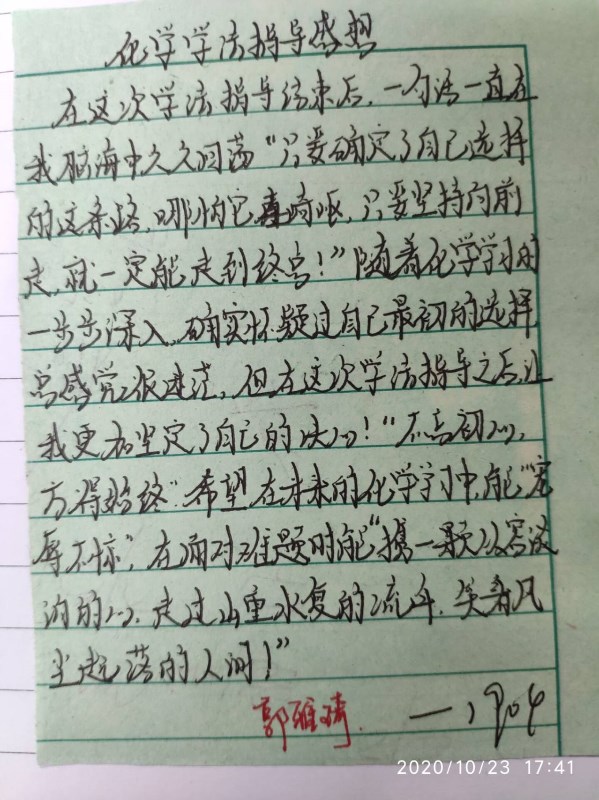 化学学法指导感想
在这次学法指导结束后，一句话一直在
我脑海中久久回荡“只要确定了自己选择
的这条路，哪怕它崎岖，只要坚持向前
走，就一定能走到终点！”随着化学学习的
一步步深入，确实怀疑过自己最初的选择，
总感觉很迷茫，但在这次学法指导之后，让
我更加坚定了自己的决心！“不忘初心，
方得始终”希望在未来的化学学习中，能“宠
辱不惊”，在面对难题时能“携一颗从容淡
泊的心，走过山重水复的流年，笑看风
尘起落的人间！”
郭雅琦
2020/10/23 17:41